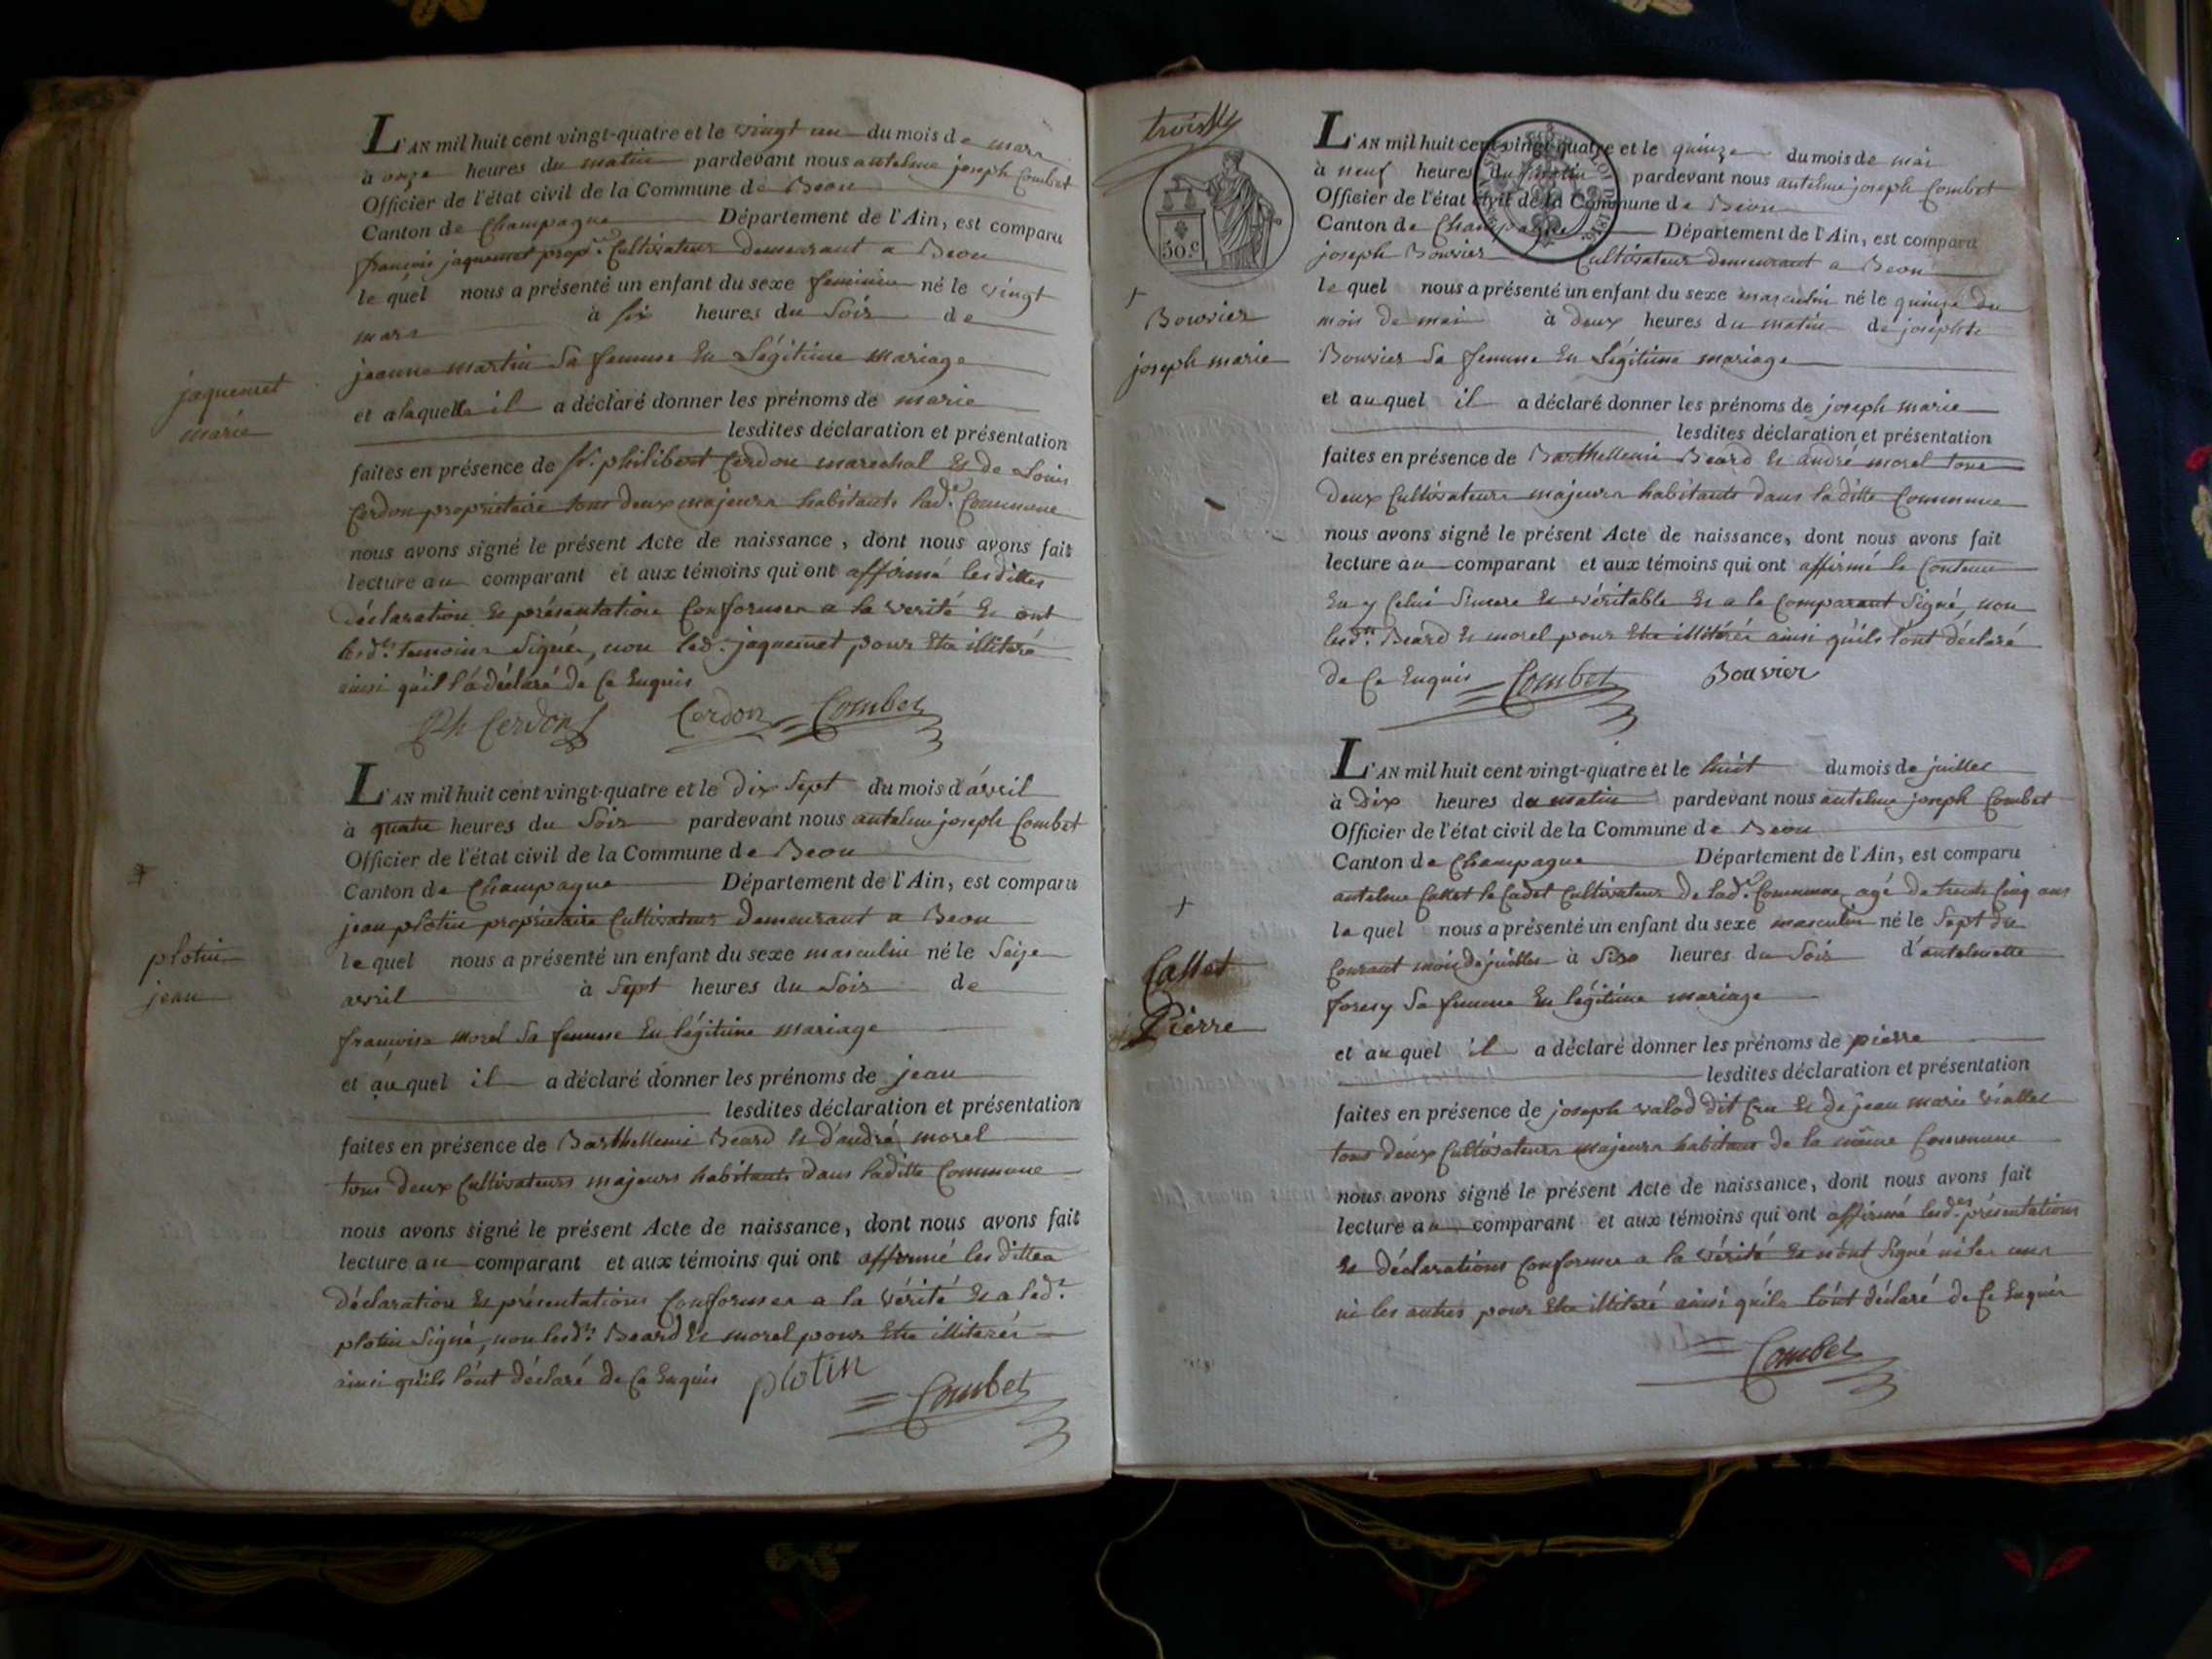 L'AN mil huit cent vingt-quatre et le vingt un du mois de mars
à onze heures du matin pardevant nous antelme joseph Combet
Officier de l'état civil de la Commune de Beon
Canton de Champagne Département de l'Ain, est comparu
françois jaquemet prop.re Cultivateur demeurant a Beon
le quel nous a présenté un enfant du sexe feminin né le vingt
mars à six heures du Soir de
jeanne martin Sa femme En Légitime mariage
jaquemet
marie
et a laquelle il a déclaré donner les prénoms de marie
lesdites déclaration et présentation
faites en présence de Sr. philibert Cerdon marechal Et de Louis
Cerdon proprietaire tous deux majeurs habitants lad.e Commune
nous avons signé le présent Acte de naissance, dont nous avons fait
lecture au comparant et aux témoins qui ont affirmé les dittes
déclaration Et présentation Conformes a la verité Et ont
lesd.ts temoins Signés, non led. jaquemet pour Etre illiteré
ainsi qu'il l'a déclaré de Ce Enquis
Ph Cerdon Cerdon Combet
L'AN mil huit cent vingt-quatre et le dix Sept du mois d'avril
à quatre heures du Soir pardevant nous antelme joseph Combet
Officier de l'état civil de la Commune de Beon
Canton de Champagne Département de l'Ain, est comparu
jean plotin propriétaire Cultivateur demeurant a Beon
plotin
jean
le quel nous a présenté un enfant du sexe masculin né le Seize
avril à Sept heures du Soir de
françoise morel Sa femme En légitime mariage
et au quel il a déclaré donner les prénoms de jean
lesdites déclaration et présentation
faites en présence de Barthellemi Beard Et d'andré morel
tous deux Cultivateurs majeurs habitants dans laditte Commune
nous avons signé le présent Acte de naissance, dont nous avons fait
lecture au comparant et aux témoins qui ont affirmé les dittes
déclaration Et présentations Conformes a la vérité Et a led.t
plotin Signé, non lesd.ts Beard Et morel pour Etre illiterés
ainsi qu'ils l'ont déclaré de Ce Enquis plotin
Combet
trois
50 c.
L'AN mil huit cent vingt-quatre et le quinze du mois de mai
à neuf heures du matin pardevant nous antelme joseph Combet
Officier de l'état civil de la Commune de Beon
Canton de Champagne Département de l'Ain, est comparu
joseph Bouvier Cultivateur demeurant a Beon
le quel nous a présenté un enfant du sexe masculin né le quinze du
mois de mai à deux heures du matin de josephte
Bouvier
joseph marie
Bouvier Sa femme En Légitime mariage
et au quel il a déclaré donner les prénoms de joseph marie
lesdites déclaration et présentation
faites en présence de Barthellemi Beard Et andré morel tous
deux Cultivateurs majeurs habitants dans laditte Commune
nous avons signé le présent Acte de naissance, dont nous avons fait
lecture au comparant et aux témoins qui ont affirmé le Contenu
En y Celui Sincere Et véritable Et a le Comparant Signé, non
lesd.ts Beard Et morel pour Etre illiterés ainsi qu'ils l'ont déclaré
de Ce Enquis Combet Bouvier
L'AN mil huit cent vingt-quatre et le huit du mois de juillet
à dix heures du matin pardevant nous antelme joseph Combet
Officier de l'état civil de la Commune de Beon
Canton de Champagne Département de l'Ain, est comparu
antelme Callet le Cadet Cultivateur de lad.e Commune agé de trente Cinq ans
le quel nous a présenté un enfant du sexe masculin né le Sept du
Courant mois de juillet à Six heures du Soir d'antelmette
Callet
Pierre
forey Sa femme En légitime mariage
et au quel il a déclaré donner les prénoms de pierre
lesdites déclaration et présentation
faites en présence de joseph valod dit Cru Et de jean marie viallet
tous deux Cultivateurs majeurs habitans de la même Commune
nous avons signé le présent Acte de naissance, dont nous avons fait
lecture au comparant et aux témoins qui ont affirmé lesd.es présentations
Et déclarations Conformes a la vérité Et n'ont Signé ni les uns
ni les autres pour Etre illiteré ainsi qu'ils l'ont déclaré de Ce Enquis
Combet